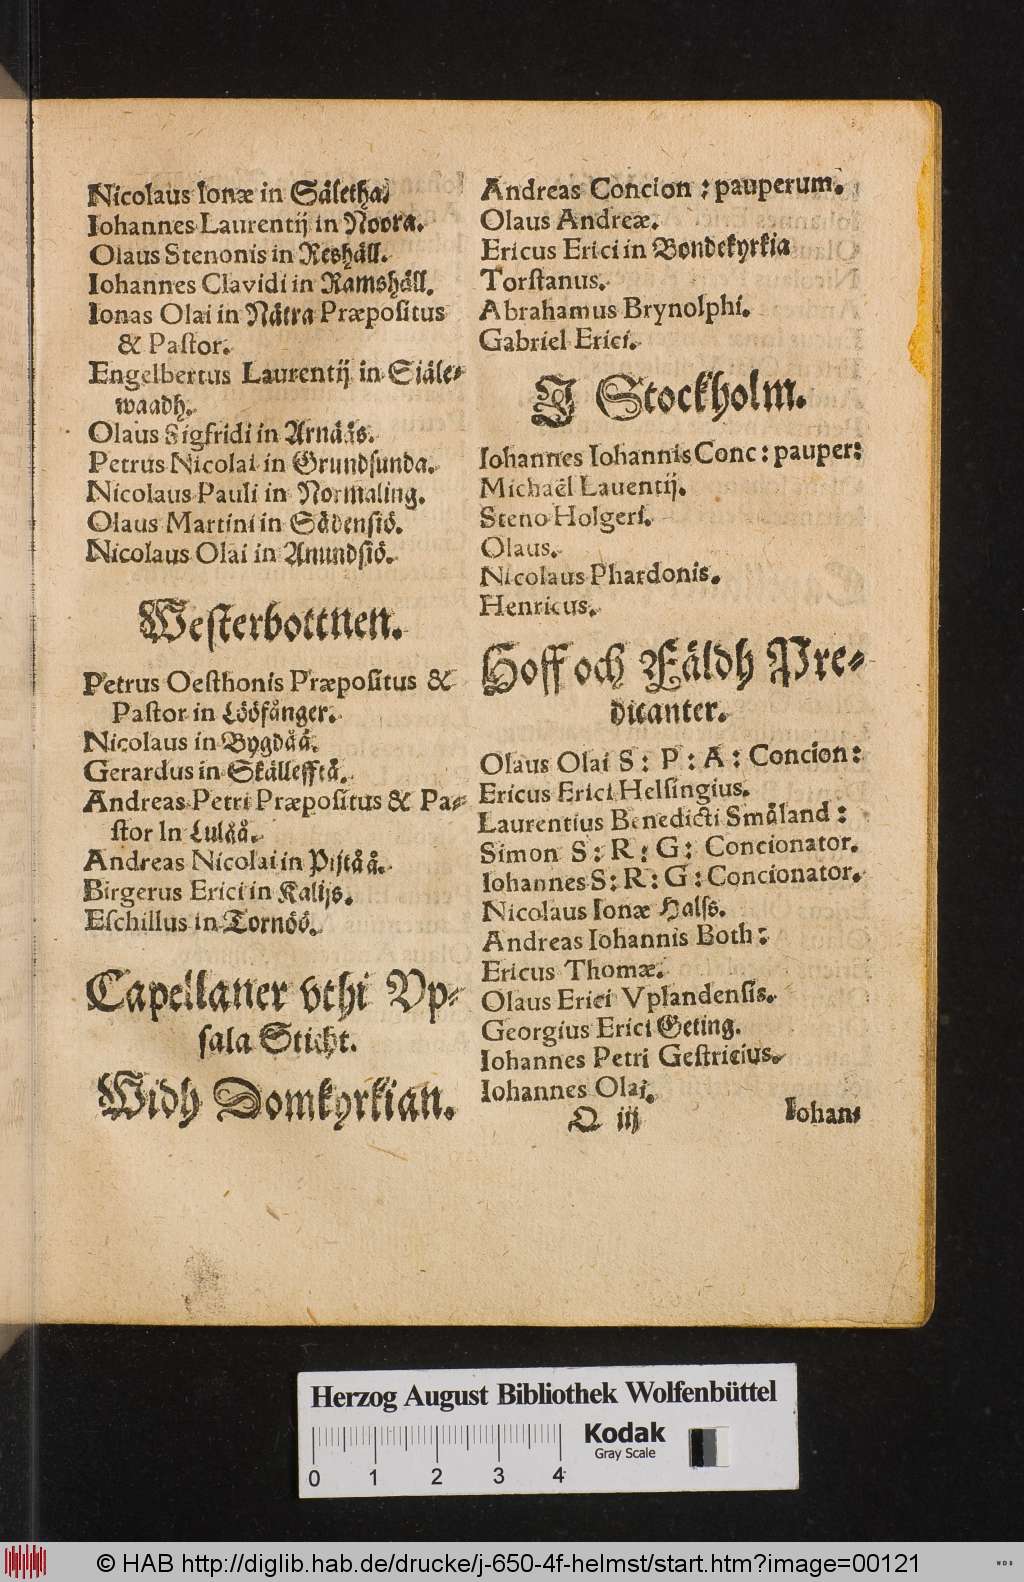 Nicolaus Ionæ in Säletha.
Iohannes Laurentij in Noora.
Olaus Stenonis in Reshäll.
Iohannes Clavidi in Ramshäll.
Ionas Olai in Nätra Præpositus
& Pastor.
Engelbertus Laurentij in Siäle-
waadh.
Olaus Sigfridi in Arnääs.
Petrus Nicolai in Grundsunda.
Nicolaus Pauli in Normaling.
Olaus Martini in Sädensiö.
Nicolaus Olai in Anundsiö.
Westerbottnen.
Petrus Oesthonis Præpositus &
Pastor in Lööfånger.
Nicolaus in Bygdåå.
Gerardus in Skällefftå.
Andreas Petri Præpositus & Pa-
stor In Lulåå.
Andreas Nicolai in Pijtåå.
Birgerus Erici in Kalijs.
Eschillus in Tornöö.
Capellaner vthi Vp-
sala Sticht.
Widh Domkyrkian.
Andreas Concion : pauperum.
Olaus Andreæ.
Ericus Erici in Bondekyrkia
Torstanus.
Abrahamus Brynolphi.
Gabriel Erici.
J Stockholm.
Iohannes Iohannis Conc : pauper:
Michaël Lauentij.
Steno Holgeri.
Olaus.
Nicolaus Phardonis.
Henricus.
Hoff och Fäldh Pre-
dicanter.
Olaus Olai S : P : A : Concion:
Ericus Erici Helsingius.
Laurentius Benedicti Småland :
Simon S : R : G : Concionator.
Iohannes S : R : G : Concionator.
Nicolaus Ionæ Halss.
Andreas Iohannis Both :
Ericus Thomæ.
Olaus Erici Vplandensis.
Georgius Erici Geting.
Iohannes Petri Gestricius.
Iohannes Olai.
O iij
Iohan-
Herzog August Bibliothek Wolfenbüttel
Kodak
Gray Scale
0 1 2 3 4
© HAB http://diglib.hab.de/drucke/j-650-4f-helmst/start.htm?image=00121
WDB